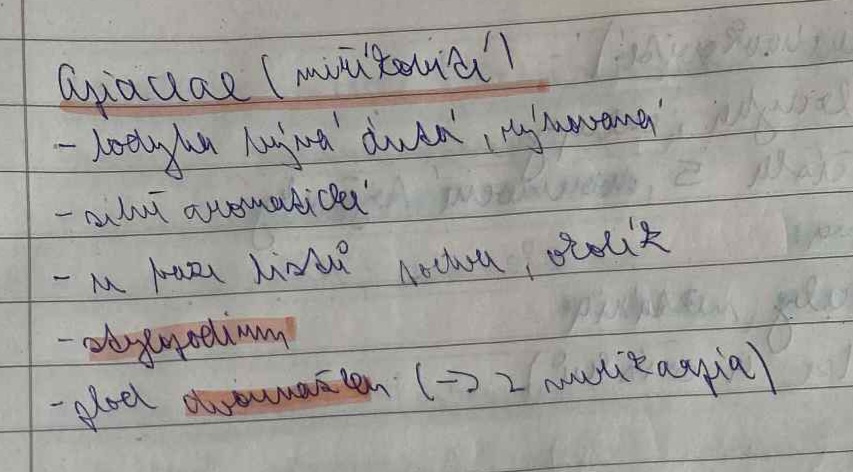 Apiaceae (miříkovité)
- lodyha bývá dutá, rýhovaná
- silně aromatické
- u bazí listů pochva, okolík
- stylopodium
- plod dvounažka (-> 2 merikarpia)